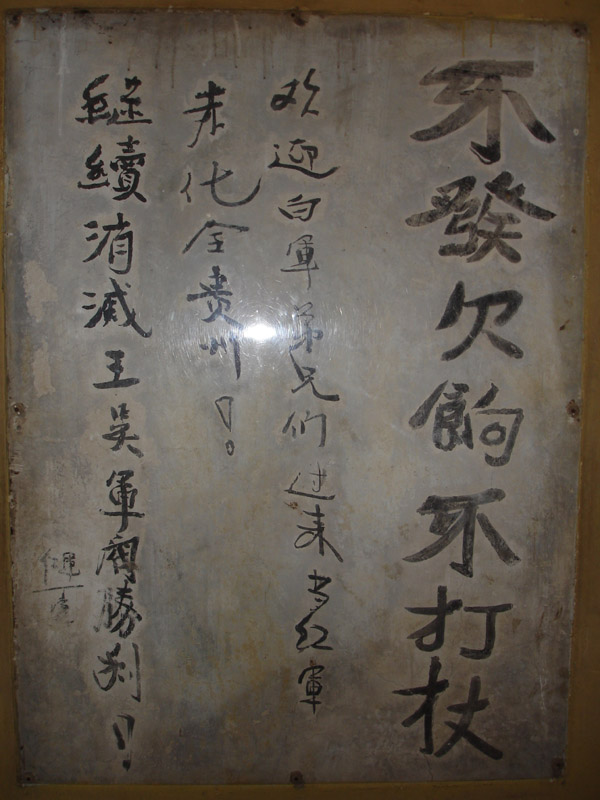 不發欠餉不打杖
欢迎白軍弟兄们过来当红軍
赤化全贵州！。
継續消滅王吴軍阀勝利！